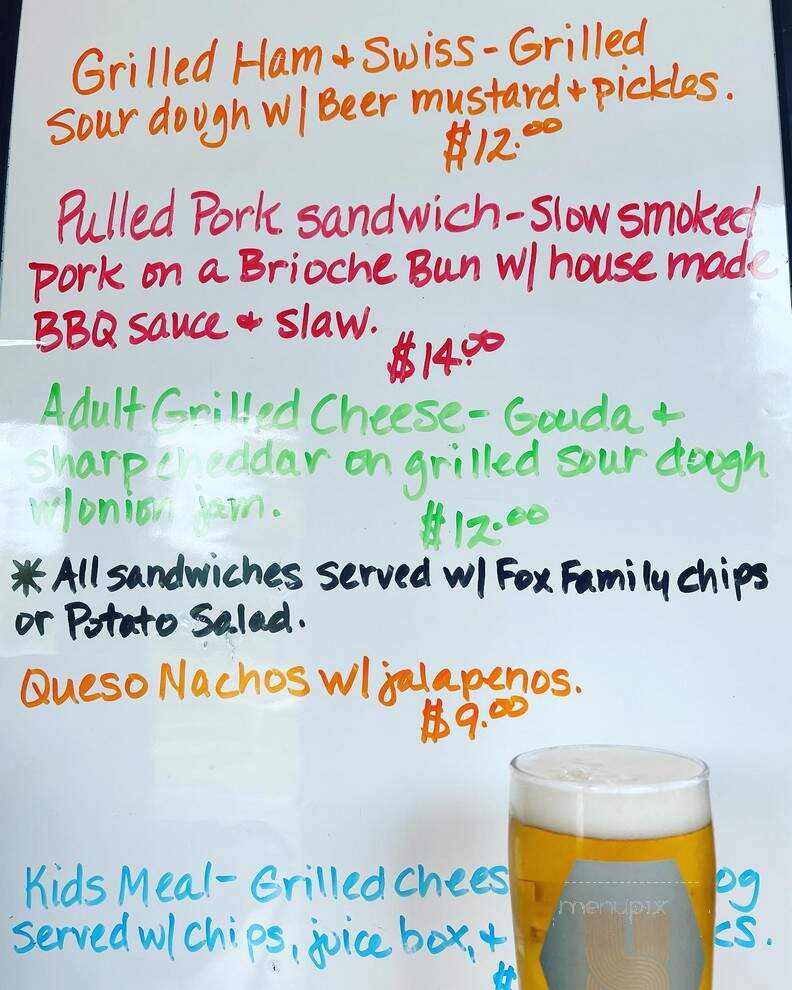 Grilled Ham + Swiss - Grilled
sour dough w/ Beer mustard + pickles.
$12.00
Pulled Pork sandwich - Slow smoked
pork on a Brioche Bun w/ house made
BBQ sauce + slaw.
$14.00
Adult Grilled Cheese - Gouda +
sharp cheddar on grilled sour dough
w/onion jam.
$12.00
* All sandwiches served w/ Fox Family chips
or Potato Salad.
Queso Nachos w/ jalapenos.
$9.00
Kids Meal - Grilled
served w/ chips, juice box, +
$
menupix